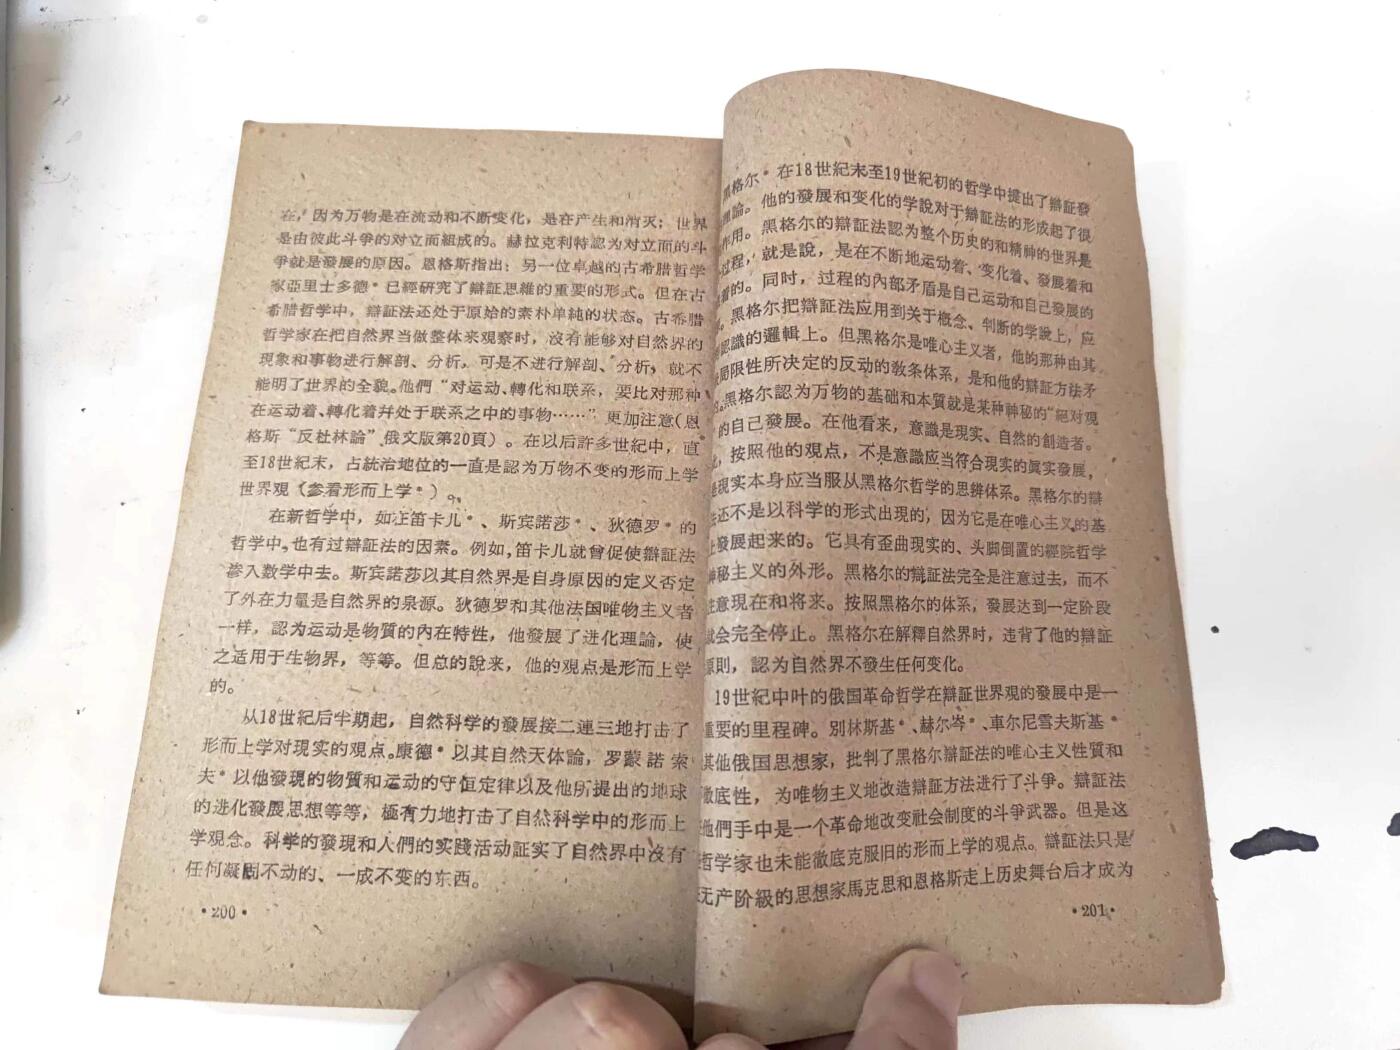 在，因为万物是在流动和不断变化，是在产生和消灭；世界
是由彼此斗爭的对立而組成的。赫拉克利特認为对立而的斗
爭就是發展的原因。恩格斯指出：另一位卓越的古希腊哲学
家亞里士多德*已經研究了辯証思維的重要的形式。但在古
希腊哲学中，辯証法还处于原始的素朴单純的状态。古希腊
哲学家在把自然界当做整体来观察时，沒有能够对自然界的
現象和事物进行解剖、分析，可是不进行解剖、分析，就不
能明了世界的全貌。他們“对运动、轉化和联系，要比对那种
在运动着、轉化着幷处于联系之中的事物……”更加注意（恩
格斯“反杜林論”俄文版第20頁）。在以后許多世紀中，直
至18世紀末，占統治地位的一直是認为万物不变的形而上学
世界覌（参看形而上学*）。
在新哲学中，如在笛卡儿*、斯宾諾莎*、狄德罗*的
哲学中，也有过辯証法的因素。例如，笛卡儿就曾促使辯証法
渗入数学中去。斯宾諾莎以其自然界是自身原因的定义否定
了外在力量是自然界的泉源。狄德罗和其他法国唯物主义者
一样，認为运动是物質的內在特性，他發展了进化理論，使
之适用于生物界，等等。但总的說来，他的覌点是形而上学
的。
从18世紀后半期起，自然科学的發展接二連三地打击了
形而上学对現实的覌点。康德*以其自然天体論，罗蒙諾索
夫*以他發現的物質和运动的守恒定律以及他所提出的地球
的进化發展思想等等，極有力地打击了自然科学中的形而上
学覌念。科学的發現和人們的实踐活动証实了自然界中沒有
任何凝固不动的、一成不变的东西。
·200·
黑格尔*在18世紀末至19世紀初的哲学中提出了辯証發
理論。他的發展和变化的学說对于辯証法的形成起了很
作用。黑格尔的辯証法認为整个历史的和精神的世界是
过程，就是說，是在不断地运动着、变化着、發展着和
着的。同时，过程的內部矛盾是自己运动和自己發展的
。黑格尔把辯証法应用到关于概念、判断的学說上，应
認識的邏輯上。但黑格尔是唯心主义者，他的那种由其
局限性所决定的反动的教条体系，是和他的辯証方法矛
。黑格尔認为万物的基础和本質就是某种神秘的“絕对覌
的自己發展。在他看来，意識是現实、自然的創造者。
，按照他的覌点，不是意識应当符合現实的眞实發展，
是現实本身应当服从黑格尔哲学的思辨体系。黑格尔的辯
法还不是以科学的形式出現的，因为它是在唯心主义的基
上發展起来的。它具有歪曲現实的、头脚倒置的經院哲学
神秘主义的外形。黑格尔的辯証法完全是注意过去，而不
注意現在和将来。按照黑格尔的体系，發展达到一定阶段
就会完全停止。黑格尔在解釋自然界时，违背了他的辯証
原則，認为自然界不發生任何变化。
19世紀中叶的俄国革命哲学在辯証世界覌的發展中是一
重要的里程碑。別林斯基*、赫尔岑*、車尔尼雪夫斯基*
其他俄国思想家，批判了黑格尔辯証法的唯心主义性質和
徹底性，为唯物主义地改造辯証方法进行了斗爭。辯証法
他們手中是一个革命地改变社会制度的斗爭武器。但是这
哲学家也未能徹底克服旧的形而上学的覌点。辯証法只是
无产阶級的思想家馬克思和恩格斯走上历史舞台后才成为
·201·